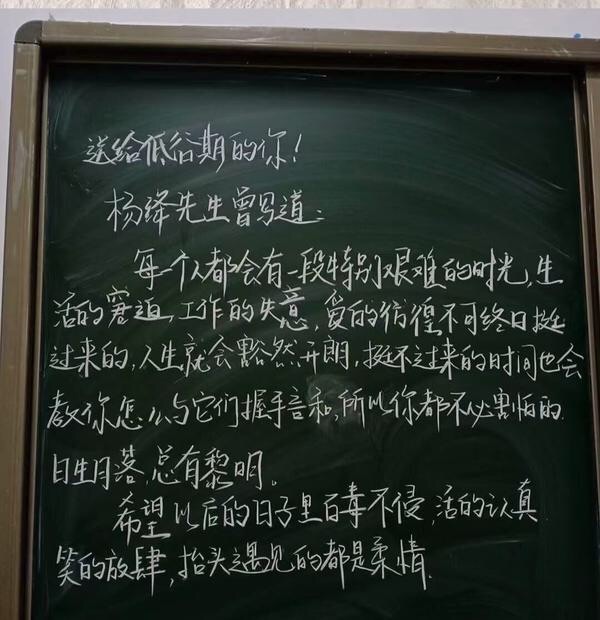 送给低谷期的你！
杨绛先生曾写道：
每一个人都会有一段特别艰难的时光，生
活的窘迫，工作的失意，爱的彷徨不可终日挺
过来的，人生就会豁然开朗，挺不过来的时间也会
教你怎么与它们握手言和，所以你都不必害怕的
日生月落，总有黎明。
希望以后的日子里百毒不侵，活的认真
笑的放肆，抬头遇见的都是柔情.